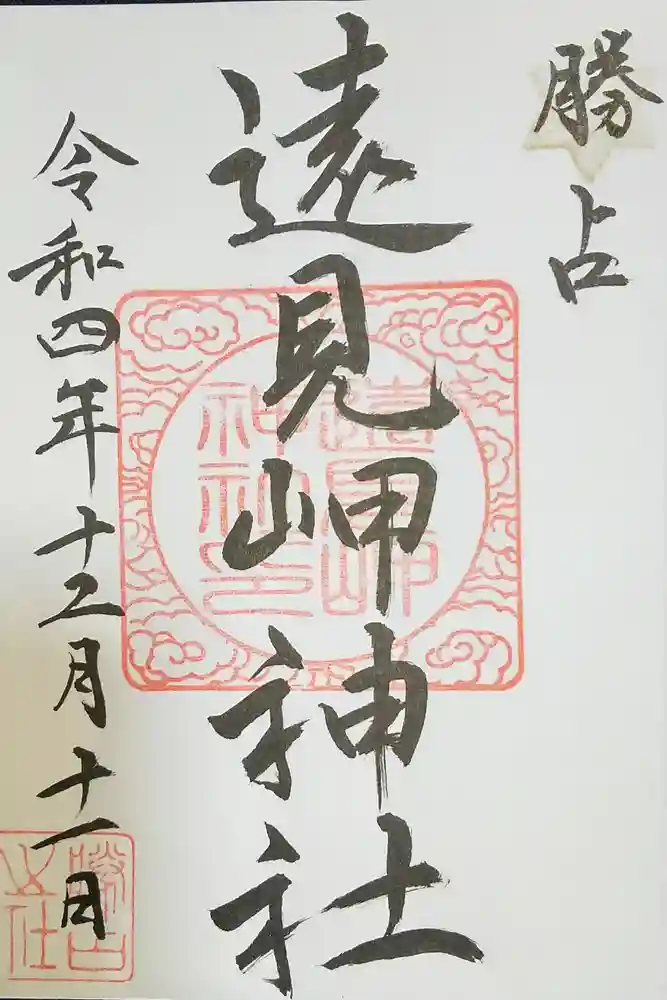 勝占
遠見岬神社
令和四年十二月十一日
遠見岬
神社印